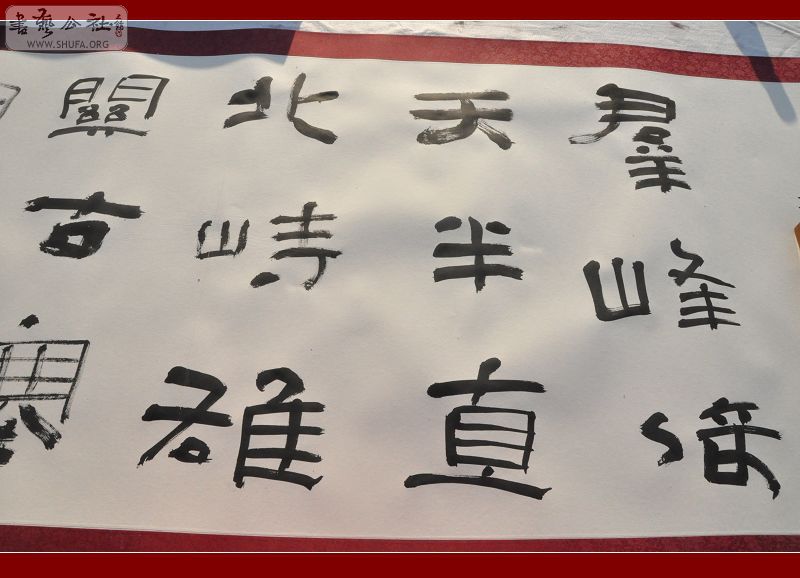 羣峰倚
天半直
北峙雄
關古
書藝公社
WWW.SHUFA.ORG